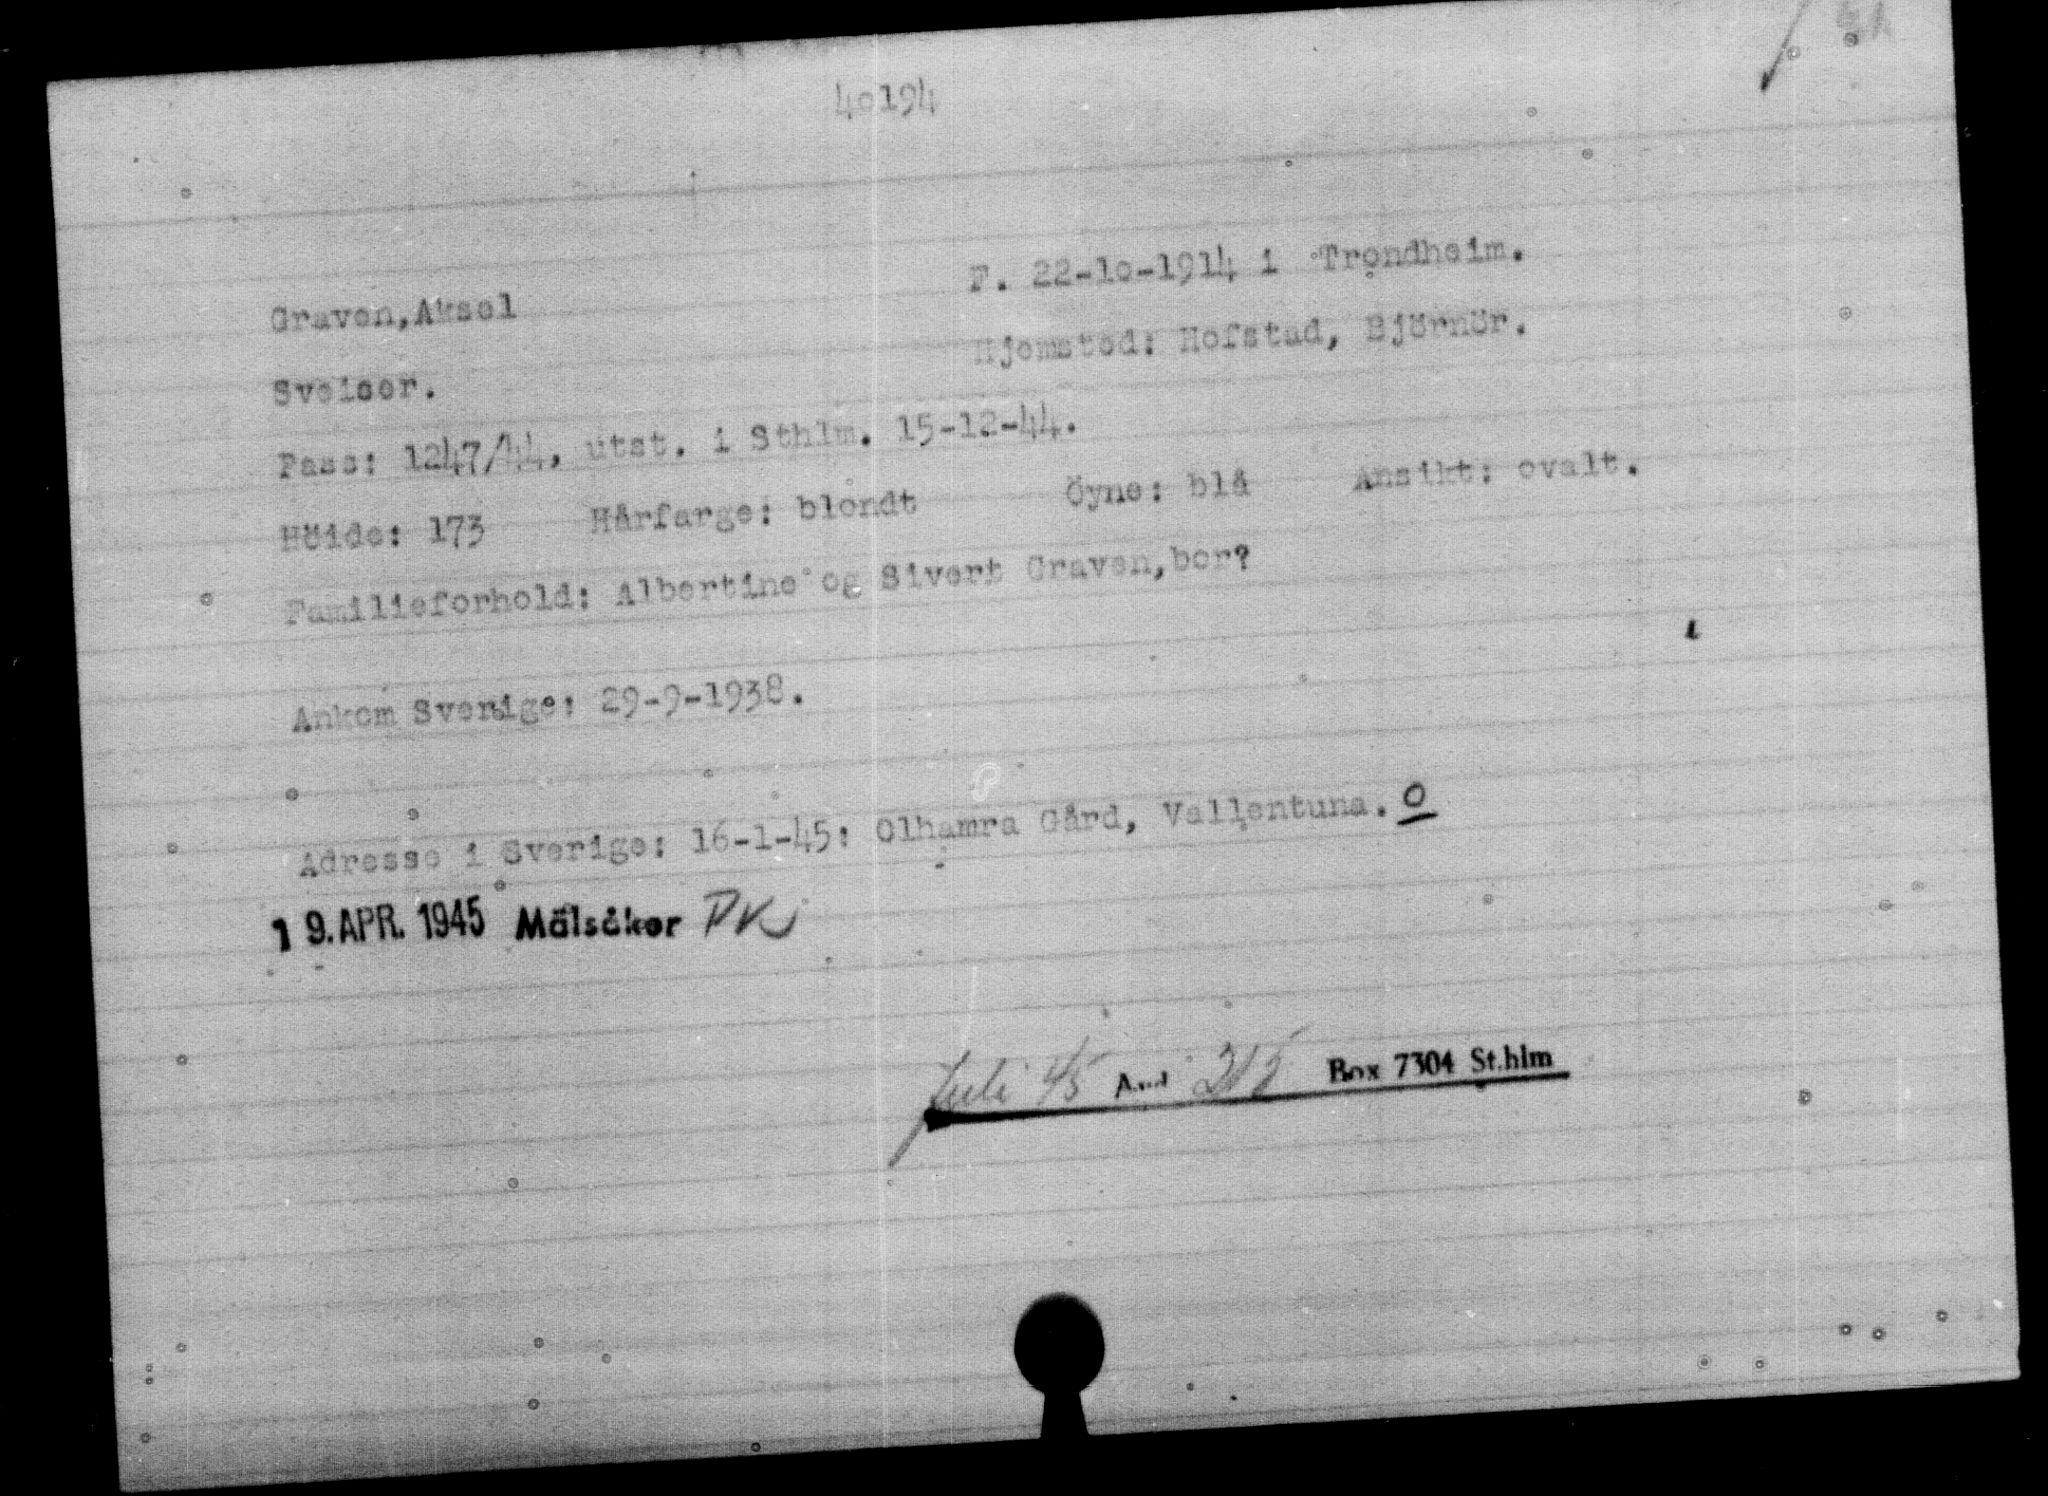 40194
Graven,Aksel F. 22-10-1914 i Trondheim.
Sveiser. Hjemsted: Hofstad, Björnör.
Pass: 1247/44, utst. i Sthlm. 15-12-44.
Höide: 173 Hårfarge: blondt Öyne: blå Ansikt: ovalt.
Familieforhold: Albertine og Sivert Graven,bor?
Ankom Sverige: 29-9-1938.
Adresse i Sverige: 16-1-45: Olhamra Gård, Vallentuna. O
19. APR. 1945 Mälsåker PK
Juli 45 Box 7304 St.hlm